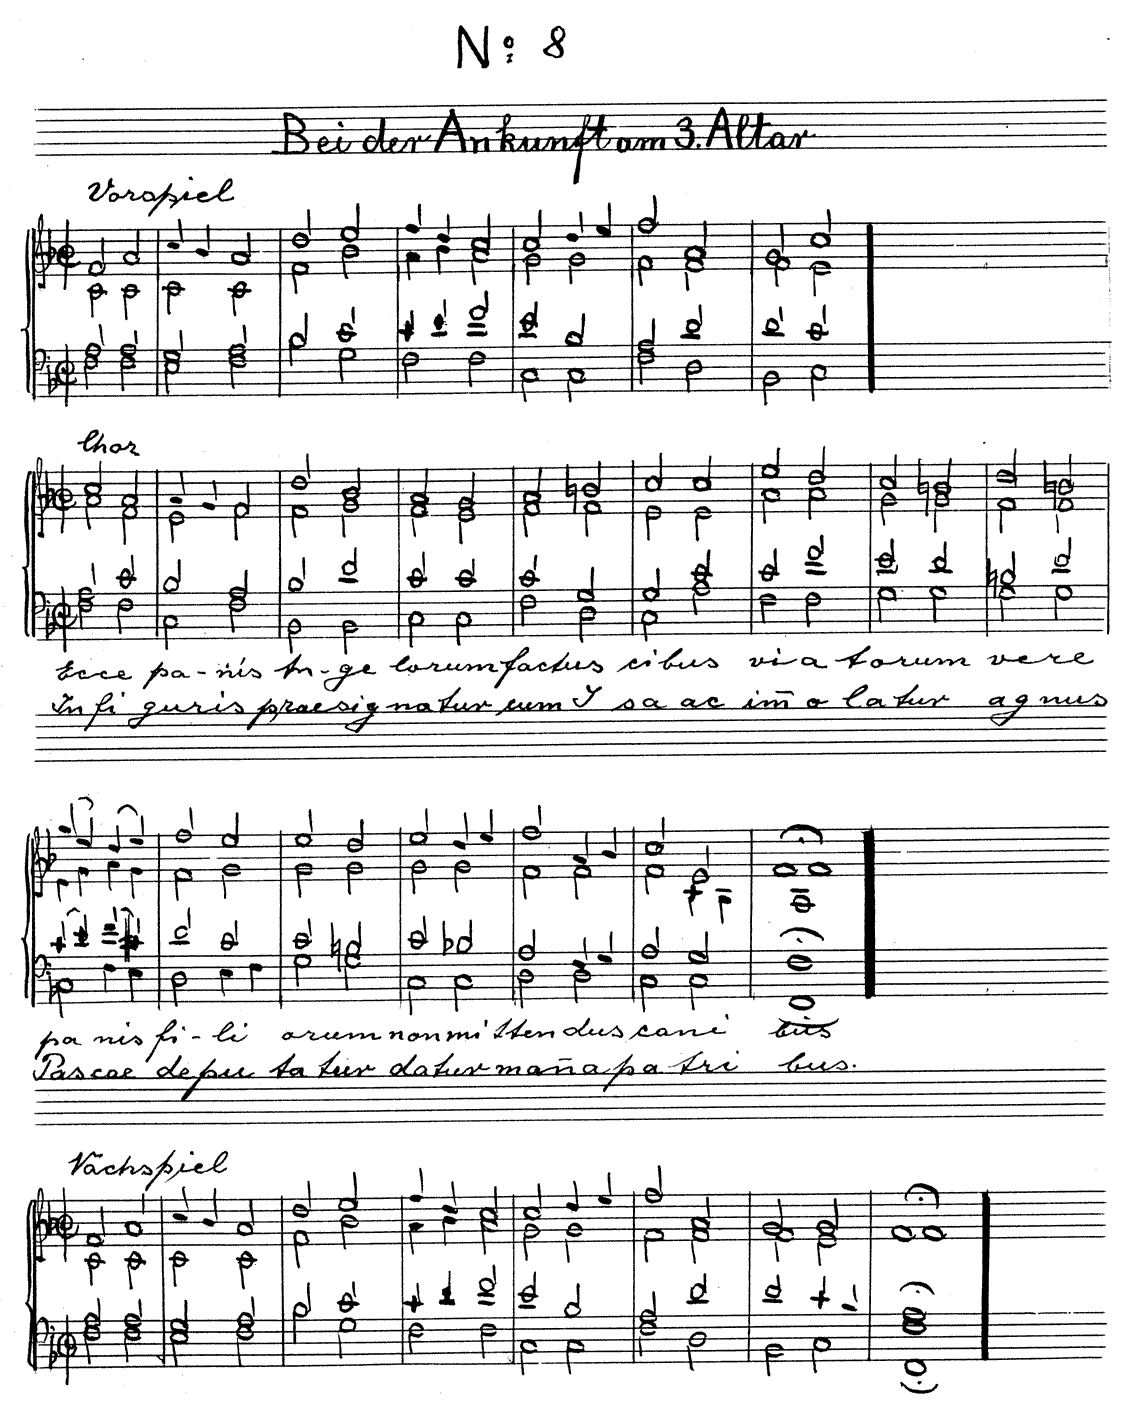 No: 8
Bei der Ankunft am 3. Altar
Vorspiel
Chor
Ecce pa-nis An-ge lorum factus cibus via torum vere
In fi guris praesignatur cum I sa ac im̄o latur agnus
pa nis fi-li orum non mi tten dus cani bus
Pascae depu ta tur datur man̄a pa tri bus.
Nachspiel